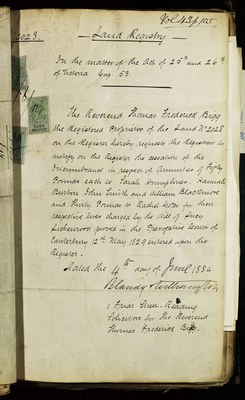 Vol 43 p 105
2028
Land Registry
In the matter of the Act of 25th and 26th
of Victoria Cap 53
The Reverend Thomas Frederick Bigg
the Registered Proprietor of the Land No 2028
on the Register hereby requests the Registrar to
notify on the Register the cessation of the
Incumbrance in respect of Annuities of Fifty
Pounds each to Sarah Humphries. Hannah
Burton John Smith and William Blackmore
and Thirty Pounds to for their
respective lives charged by the Will of Lucy
proved in the Prerogative Court of
Canterbury 12th May 1829 entered upon the
Register.
Dated the 4th day of June 1884
Blandy & Witherington
1 Friar Street. Reading
Solicitors for The Reverend
Thomas Frederick Bigg.